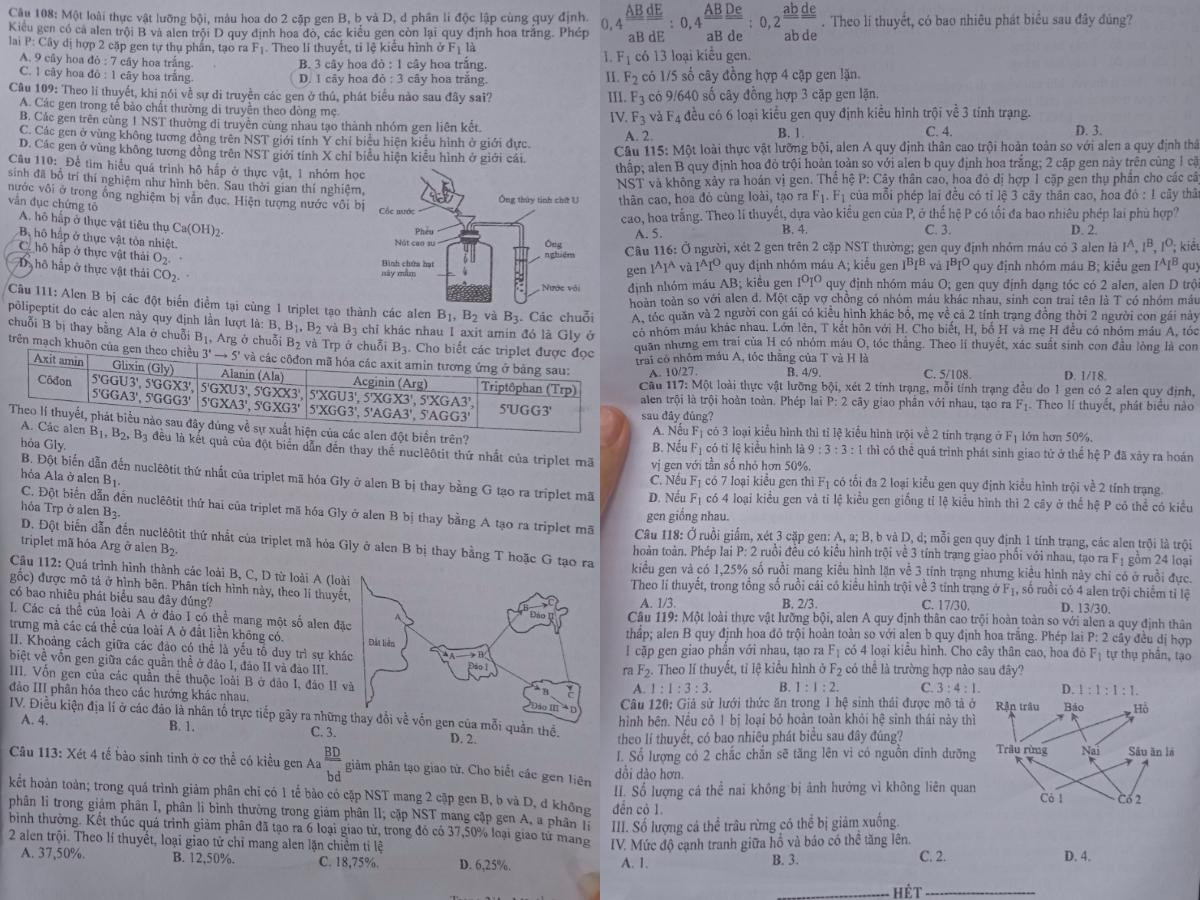 Câu 108: Một loài thực vật lưỡng bội, màu hoa do 2 cặp gen B, b và D, d phân li độc lập cùng quy định.
Kiểu gen có cả alen trội B và alen trội D quy định hoa đỏ, các kiểu gen còn lại quy định hoa trắng. Phép
lai P: Cây dị hợp 2 cặp gen tự thụ phấn, tạo ra F1. Theo lí thuyết, tỉ lệ kiểu hình ở F1 là
A. 9 cây hoa đỏ : 7 cây hoa trắng. B. 3 cây hoa đỏ : 1 cây hoa trắng.
C. 1 cây hoa đỏ : 1 cây hoa trắng. D. 1 cây hoa đỏ : 3 cây hoa trắng.
Câu 109: Theo lí thuyết, khi nói về sự di truyền các gen ở thú, phát biểu nào sau đây sai?
A. Các gen trong tế bào chất thường di truyền theo dòng mẹ.
B. Các gen trên cùng 1 NST thường di truyền cùng nhau tạo thành nhóm gen liên kết.
C. Các gen ở vùng không tương đồng trên NST giới tính Y chỉ biểu hiện kiểu hình ở giới đực.
D. Các gen ở vùng không tương đồng trên NST giới tính X chỉ biểu hiện kiểu hình ở giới cái.
Câu 110: Để tìm hiểu quá trình hô hấp ở thực vật, 1 nhóm học
sinh đã bố trí thí nghiệm như hình bên. Sau thời gian thí nghiệm,
nước vôi ở trong ống nghiệm bị vẩn đục. Hiện tượng nước vôi bị
vẩn đục chứng tỏ
A. hô hấp ở thực vật tiêu thụ Ca(OH)2.
B. hô hấp ở thực vật tỏa nhiệt.
C. hô hấp ở thực vật thải O2.
D. hô hấp ở thực vật thải CO2.
Cốc nước
Ống thủy tinh chữ U
Phễu
Nút cao su
Ống
nghiệm
Bình chứa hạt
nảy mầm
Nước vôi
Câu 111: Alen B bị các đột biến điểm tại cùng 1 triplet tạo thành các alen B1, B2 và B3. Các chuỗi
pôlipeptit do các alen này quy định lần lượt là: B, B1, B2 và B3 chỉ khác nhau 1 axit amin đó là Gly ở
chuỗi B bị thay bằng Ala ở chuỗi B1, Arg ở chuỗi B2 và Trp ở chuỗi B3. Cho biết các triplet được đọc
trên mạch khuôn của gen theo chiều 3' → 5' và các côđon mã hóa các axit amin tương ứng ở bảng sau:
Axit amin Glixin (Gly) Alanin (Ala) Acginin (Arg) Triptôphan (Trp)
Côđon 5'GGU3', 5'GGX3', 5'GXU3', 5'GXX3', 5'XGU3', 5'XGX3', 5'XGA3', 5'UGG3'
5'GGA3', 5'GGG3' 5'GXA3', 5'GXG3' 5'XGG3', 5'AGA3', 5'AGG3'
Theo lí thuyết, phát biểu nào sau đây đúng về sự xuất hiện của các alen đột biến trên?
A. Các alen B1, B2, B3 đều là kết quả của đột biến dẫn đến thay thế nuclêôtit thứ nhất của triplet mã
hóa Gly.
B. Đột biến dẫn đến nuclêôtit thứ nhất của triplet mã hóa Gly ở alen B bị thay bằng G tạo ra triplet mã
hóa Ala ở alen B1.
C. Đột biến dẫn đến nuclêôtit thứ hai của triplet mã hóa Gly ở alen B bị thay bằng A tạo ra triplet mã
hóa Trp ở alen B3.
D. Đột biến dẫn đến nuclêôtit thứ nhất của triplet mã hóa Gly ở alen B bị thay bằng T hoặc G tạo ra
triplet mã hóa Arg ở alen B2.
Câu 112: Quá trình hình thành các loài B, C, D từ loài A (loài
gốc) được mô tả ở hình bên. Phân tích hình này, theo lí thuyết,
có bao nhiêu phát biểu sau đây đúng?
I. Các cá thể của loài A ở đảo I có thể mang một số alen đặc
trưng mà các cá thể của loài A ở đất liền không có.
II. Khoảng cách giữa các đảo có thể là yếu tố duy trì sự khác
biệt về vốn gen giữa các quần thể ở đảo I, đảo II và đảo III.
III. Vốn gen của các quần thể thuộc loài B ở đảo I, đảo II và
đảo III phân hóa theo các hướng khác nhau.
IV. Điều kiện địa lí ở các đảo là nhân tố trực tiếp gây ra những thay đổi về vốn gen của mỗi quần thể.
A. 4. B. 1. C. 3. D. 2.
Đất liền
A
A B
Đảo I
B C
Đảo II
B C
Đảo III D
Câu 113: Xét 4 tế bào sinh tinh ở cơ thể có kiểu gen Aa BD/bd giảm phân tạo giao tử. Cho biết các gen liên
kết hoàn toàn; trong quá trình giảm phân chỉ có 1 tế bào có cặp NST mang 2 cặp gen B, b và D, d không
phân li trong giảm phân I, phân li bình thường trong giảm phân II; cặp NST mang cặp gen A, a phân li
bình thường. Kết thúc quá trình giảm phân đã tạo ra 6 loại giao tử, trong đó có 37,50% loại giao tử mang
2 alen trội. Theo lí thuyết, loại giao tử chỉ mang alen lặn chiếm tỉ lệ
A. 37,50%. B. 12,50%. C. 18,75%. D. 6,25%.
0,4 AB dE/aB dE : 0,4 AB De/aB de : 0,2 ab de/ab de. Theo lí thuyết, có bao nhiêu phát biểu sau đây đúng?
I. F1 có 13 loại kiểu gen.
II. F2 có 1/5 số cây đồng hợp 4 cặp gen lặn.
III. F3 có 9/640 số cây đồng hợp 3 cặp gen lặn.
IV. F3 và F4 đều có 6 loại kiểu gen quy định kiểu hình trội về 3 tính trạng.
A. 2. B. 1. C. 4. D. 3.
Câu 115: Một loài thực vật lưỡng bội, alen A quy định thân cao trội hoàn toàn so với alen a quy định thâ
thấp; alen B quy định hoa đỏ trội hoàn toàn so với alen b quy định hoa trắng; 2 cặp gen này trên cùng 1 cặ
NST và không xảy ra hoán vị gen. Thế hệ P: Cây thân cao, hoa đỏ dị hợp 1 cặp gen thụ phấn cho các câ
thân cao, hoa đỏ cùng loài, tạo ra F1. F1 của mỗi phép lai đều có tỉ lệ 3 cây thân cao, hoa đỏ : 1 cây thân
cao, hoa trắng. Theo lí thuyết, dựa vào kiểu gen của P, ở thế hệ P có tối đa bao nhiêu phép lai phù hợp?
A. 5. B. 4. C. 3. D. 2.
Câu 116: Ở người, xét 2 gen trên 2 cặp NST thường; gen quy định nhóm máu có 3 alen là I^A, I^B, I^O; kiểu
gen I^AI^A và I^AI^O quy định nhóm máu A; kiểu gen I^BI^B và I^BI^O quy định nhóm máu B; kiểu gen I^AI^B quy
định nhóm máu AB; kiểu gen I^OI^O quy định nhóm máu O; gen quy định dạng tóc có 2 alen, alen D trội
hoàn toàn so với alen d. Một cặp vợ chồng có nhóm máu khác nhau, sinh con trai tên là T có nhóm máu
A, tóc quăn và 2 người con gái có kiểu hình khác bố, mẹ về cả 2 tính trạng đồng thời 2 người con gái này
có nhóm máu khác nhau. Lớn lên, T kết hôn với H. Cho biết, H, bố H và mẹ H đều có nhóm máu A, tóc
quăn nhưng em trai của H có nhóm máu O, tóc thẳng. Theo lí thuyết, xác suất sinh con đầu lòng là con
trai có nhóm máu A, tóc thẳng của T và H là
A. 10/27. B. 4/9. C. 5/108. D. 1/18.
Câu 117: Một loài thực vật lưỡng bội, xét 2 tính trạng, mỗi tính trạng đều do 1 gen có 2 alen quy định,
alen trội là trội hoàn toàn. Phép lai P: 2 cây giao phấn với nhau, tạo ra F1. Theo lí thuyết, phát biểu nào
sau đây đúng?
A. Nếu F1 có 3 loại kiểu hình thì tỉ lệ kiểu hình trội về 2 tính trạng ở F1 lớn hơn 50%.
B. Nếu F1 có tỉ lệ kiểu hình là 9 : 3 : 3 : 1 thì có thể quá trình phát sinh giao tử ở thế hệ P đã xảy ra hoán
vị gen với tần số nhỏ hơn 50%.
C. Nếu F1 có 7 loại kiểu gen thì F1 có tối đa 2 loại kiểu gen quy định kiểu hình trội về 2 tính trạng.
D. Nếu F1 có 4 loại kiểu gen và tỉ lệ kiểu gen giống tỉ lệ kiểu hình thì 2 cây ở thế hệ P có thể có kiểu
gen giống nhau.
Câu 118: Ở ruồi giấm, xét 3 cặp gen: A, a; B, b và D, d; mỗi gen quy định 1 tính trạng, các alen trội là trội
hoàn toàn. Phép lai P: 2 ruồi đều có kiểu hình trội về 3 tính trạng giao phối với nhau, tạo ra F1 gồm 24 loại
kiểu gen và có 1,25% số ruồi mang kiểu hình lặn về 3 tính trạng nhưng kiểu hình này chỉ có ở ruồi đực.
Theo lí thuyết, trong tổng số ruồi cái có kiểu hình trội về 3 tính trạng ở F1, số ruồi có 4 alen trội chiếm tỉ lệ
A. 1/3. B. 2/3. C. 17/30. D. 13/30.
Câu 119: Một loài thực vật lưỡng bội, alen A quy định thân cao trội hoàn toàn so với alen a quy định thân
thấp; alen B quy định hoa đỏ trội hoàn toàn so với alen b quy định hoa trắng. Phép lai P: 2 cây đều dị hợp
1 cặp gen giao phấn với nhau, tạo ra F1 có 4 loại kiểu hình. Cho cây thân cao, hoa đỏ F1 tự thụ phấn, tạo
ra F2. Theo lí thuyết, tỉ lệ kiểu hình ở F2 có thể là trường hợp nào sau đây?
A. 1 : 1 : 3 : 3. B. 1 : 1 : 2. C. 3 : 4 : 1. D. 1 : 1 : 1 : 1.
Câu 120: Giả sử lưới thức ăn trong 1 hệ sinh thái được mô tả ở
hình bên. Nếu cỏ 1 bị loại bỏ hoàn toàn khỏi hệ sinh thái này thì
theo lí thuyết, có bao nhiêu phát biểu sau đây đúng?
I. Số lượng cỏ 2 chắc chắn sẽ tăng lên vì có nguồn dinh dưỡng
dồi dào hơn.
II. Số lượng cá thể nai không bị ảnh hưởng vì không liên quan
đến cỏ 1.
III. Số lượng cá thể trâu rừng có thể bị giảm xuống.
IV. Mức độ cạnh tranh giữa hổ và báo có thể tăng lên.
A. 1. B. 3. C. 2. D. 4.
Rận trâu Báo Hổ
Trâu rừng Nai Sâu ăn lá
Cỏ 1 Cỏ 2
HẾT